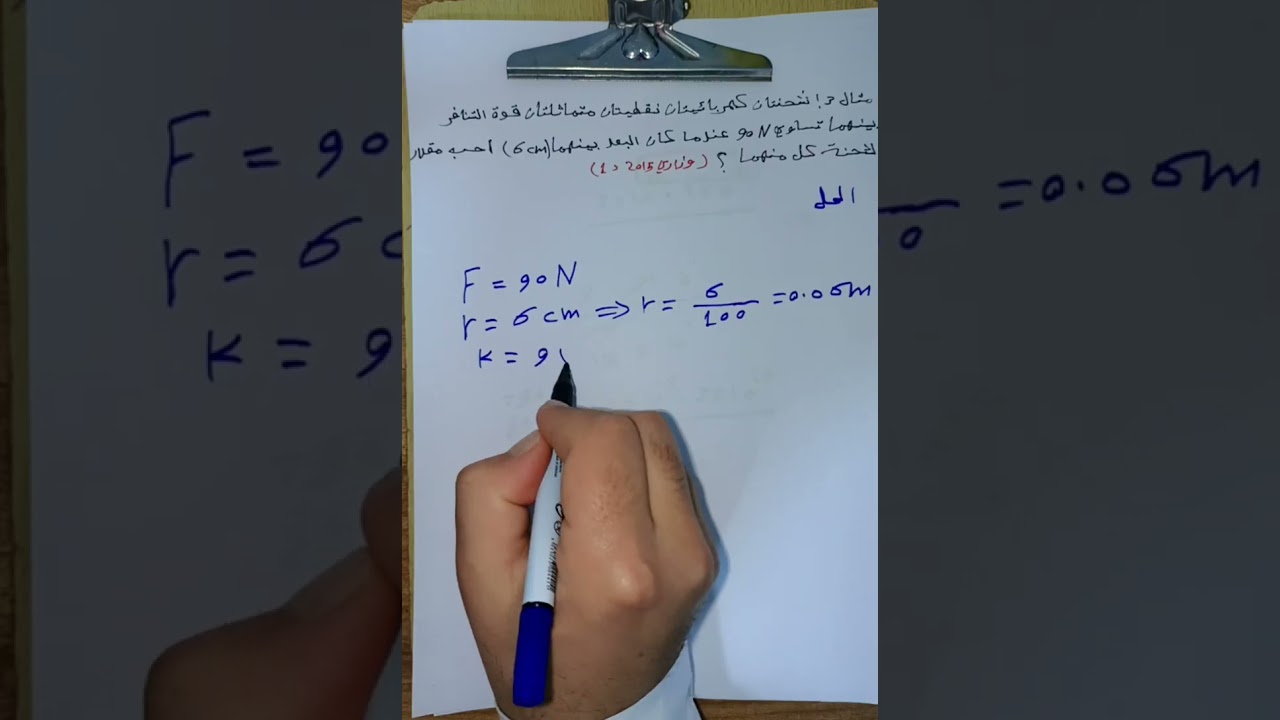 مثال 3 / شحنتان كهربائيتان نقطيتان متماثلتان قوة التنافر
بينهما تساوي 90 N عندما كان البعد بينهما (5 cm) احسب مقدار
شحنة كل منهما ؟ (وزاري 2015 د 1)
الحل
F = 90 N
r = 5 cm ⇒ r = 5/100 = 0.05m
K = 9